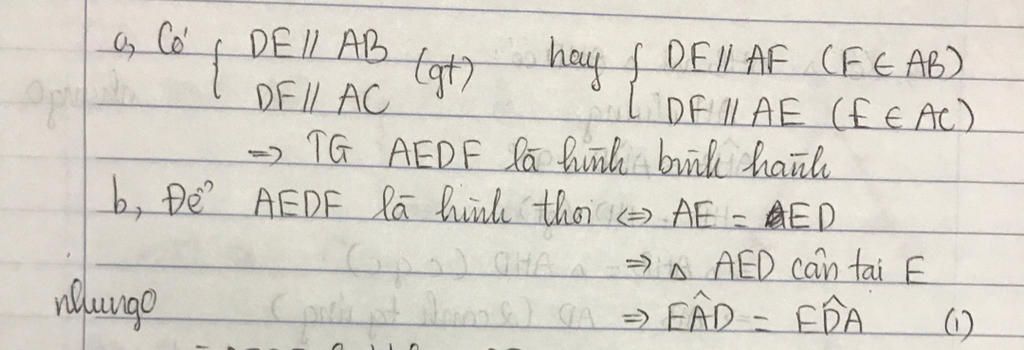 a, Có { DE // AB (gt) hay { DE // AF (F ∈ AB)
DF // AC DF // AE (E ∈ AC)
=> TG AEDF là hình bình hành
b, Để AEDF là hình thoi <=> AE = ED
=> △ AED cân tại E
nhungo => EÂD = ED̂A (1)